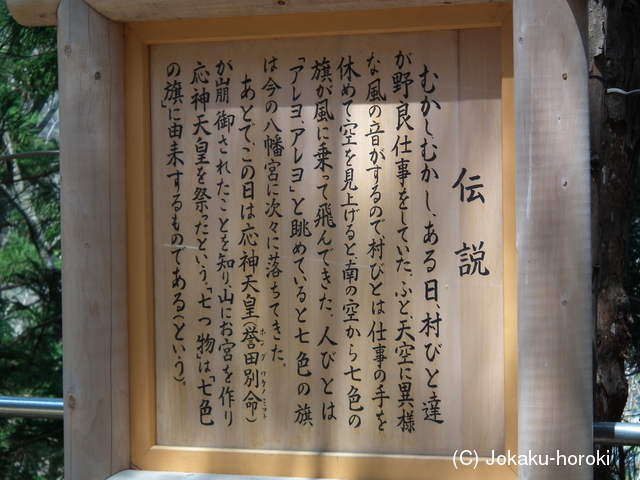 伝説
むかしむかし、ある日、村びと達
が野良仕事をしていた、ふと、天空に異様
な風の音がするので、村びとは仕事の手を
休めて空を見上げると、南の空から七色の
旗が風に乗って飛んできた、人びとは
「アレヨ、アレヨ」と眺めていると七色の旗
は今の八幡宮に次々に落ちてきた。
あとでこの日は応神天皇(誉田別命)
ホンダワケノミコト
が崩御されたことを知り、山にお宮を作り
応神天皇を祭ったという、「七つ物」は「七色
の旗」に由来するものである(という)。
(C) Jokaku-horoki